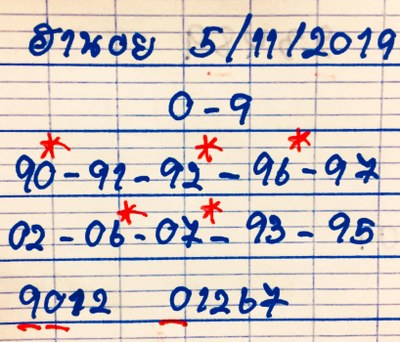 ฮานอย 5/11/2019
0-9
90*-91-92*-96*-97
02-06*-07*-93-95
9012 01267